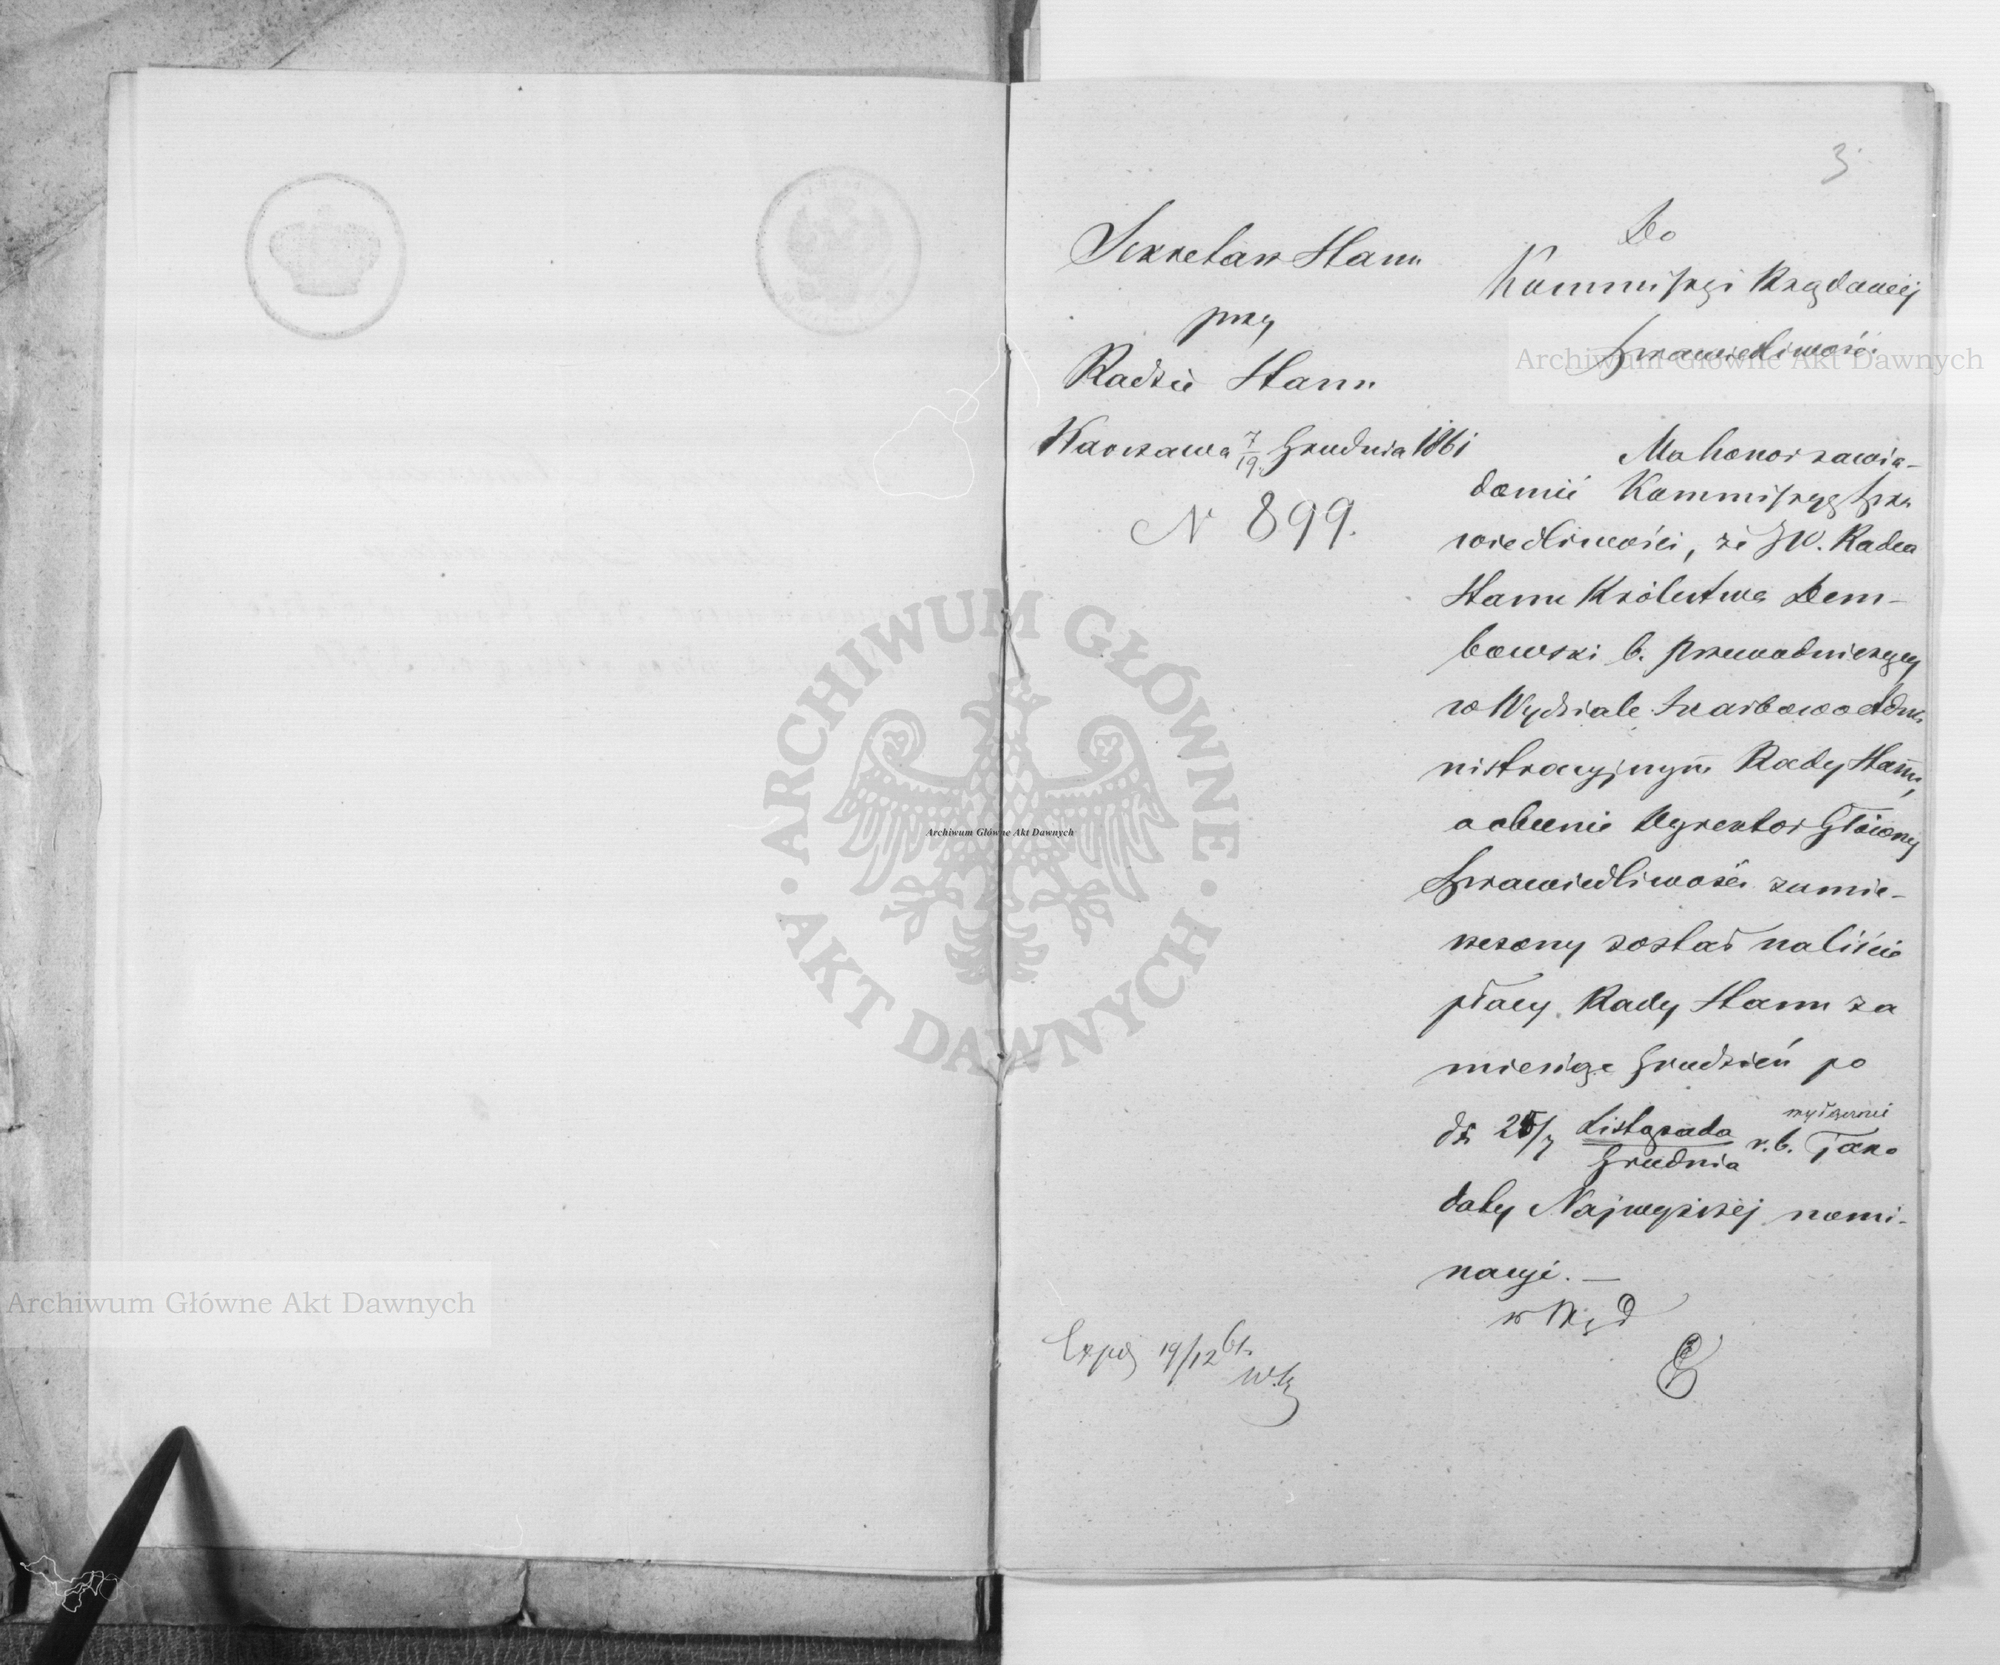 3
Sekretarz Stanu
przy
Radzie Stanu
Warszawa 7/19 Grudnia 1861
N 899.
Do
Kommissyi Rządowej
Sprawiedliwości
Ma honor zawia-
domić Kommissyę Spra
wiedliwości, że JW. Radca
Stanu Królestwa Dem-
bowski b. Przewodniczący
w Wydziale Skarbowo Admi
nistracyjnym Rady Stanu,
a obecnie Dyrektor Główny
Sprawiedliwości zamie-
szczony został na liście
płacy Rady Stanu za
miesiąc Grudzień po
dź 25/7 Listopada/Grudnia r.b. wyłącznie jako
daty Najwyższej nomi-
nacyi. —
Exped 19/12 61.
Archiwum Główne Akt Dawnych
Archiwum Główne Akt Dawnych
Archiwum Główne Akt Dawnych
ARCHIWUM GŁÓWNE
AKT DAWNYCH